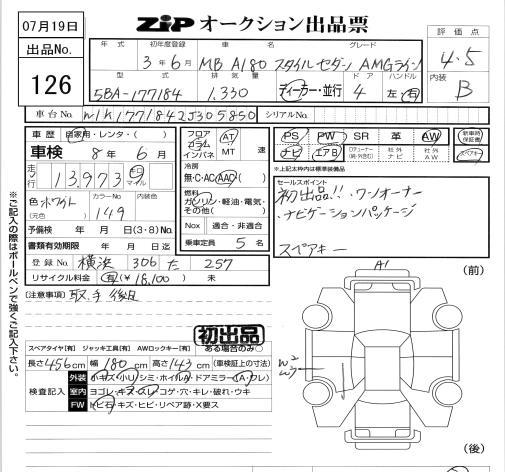 07月19日
出品No.
126
ZIP オークション出品票
評価点
4.5
内装
B
年式 初年度登録 車名 グレード
3年6月 MB A180 スタイルセダン AMGライン
型式 排気量 ドア ハンドル
5BA-177184 1,330 ディーラー・並行 4 左・右
車台No. W1K1771842J305850 シリアルNo.
車歴 自家用・レンタ・( )
車検 8年6月
走行 13,973 キロ マイル
色 ホワイト カラーNo. 149
(元色)
予備検 年 月 日(3・8)No.
書類有効期限 年 月 日迄
登録No. 横浜 306 た 257
リサイクル料金 有(¥18,100) 未
[注意事項] 取、手 後日
フロア コラム インパネ AT MT 速
冷房
無・C・AC・AAC
燃料
ガソリン・軽油・電気・その他( )
Nox 適合・非適合
乗車定員 5 名
PS PW SR 革 AW 新車時保証書
ナビ エアB 社外ナビ 社外AW スペアキー
※上記太枠内は標準装備品
セールスポイント
初出品!! ・ワンオーナー
・ナビゲーションパッケージ
スペアキー
A1
(前)
W2
W3
(後)
初出品
スペアタイヤ[有] ジャッキ工具[有] AWロックキー[有] ある場合のみ○
長さ 456cm 幅 180cm 高さ 143cm (車検証上の寸法)
検査記入
外装 小キズ・小U・シミ・ホイルA・ドアミラー(A・ワレ)
室内 ヨゴレ・キズ・スレ・コゲ・穴・キレ・破れ・ウキ
FW トビ石・キズ・ヒビ・リペア跡・X要ス
※ご記入の際はボールペンで強くご記入下さい。